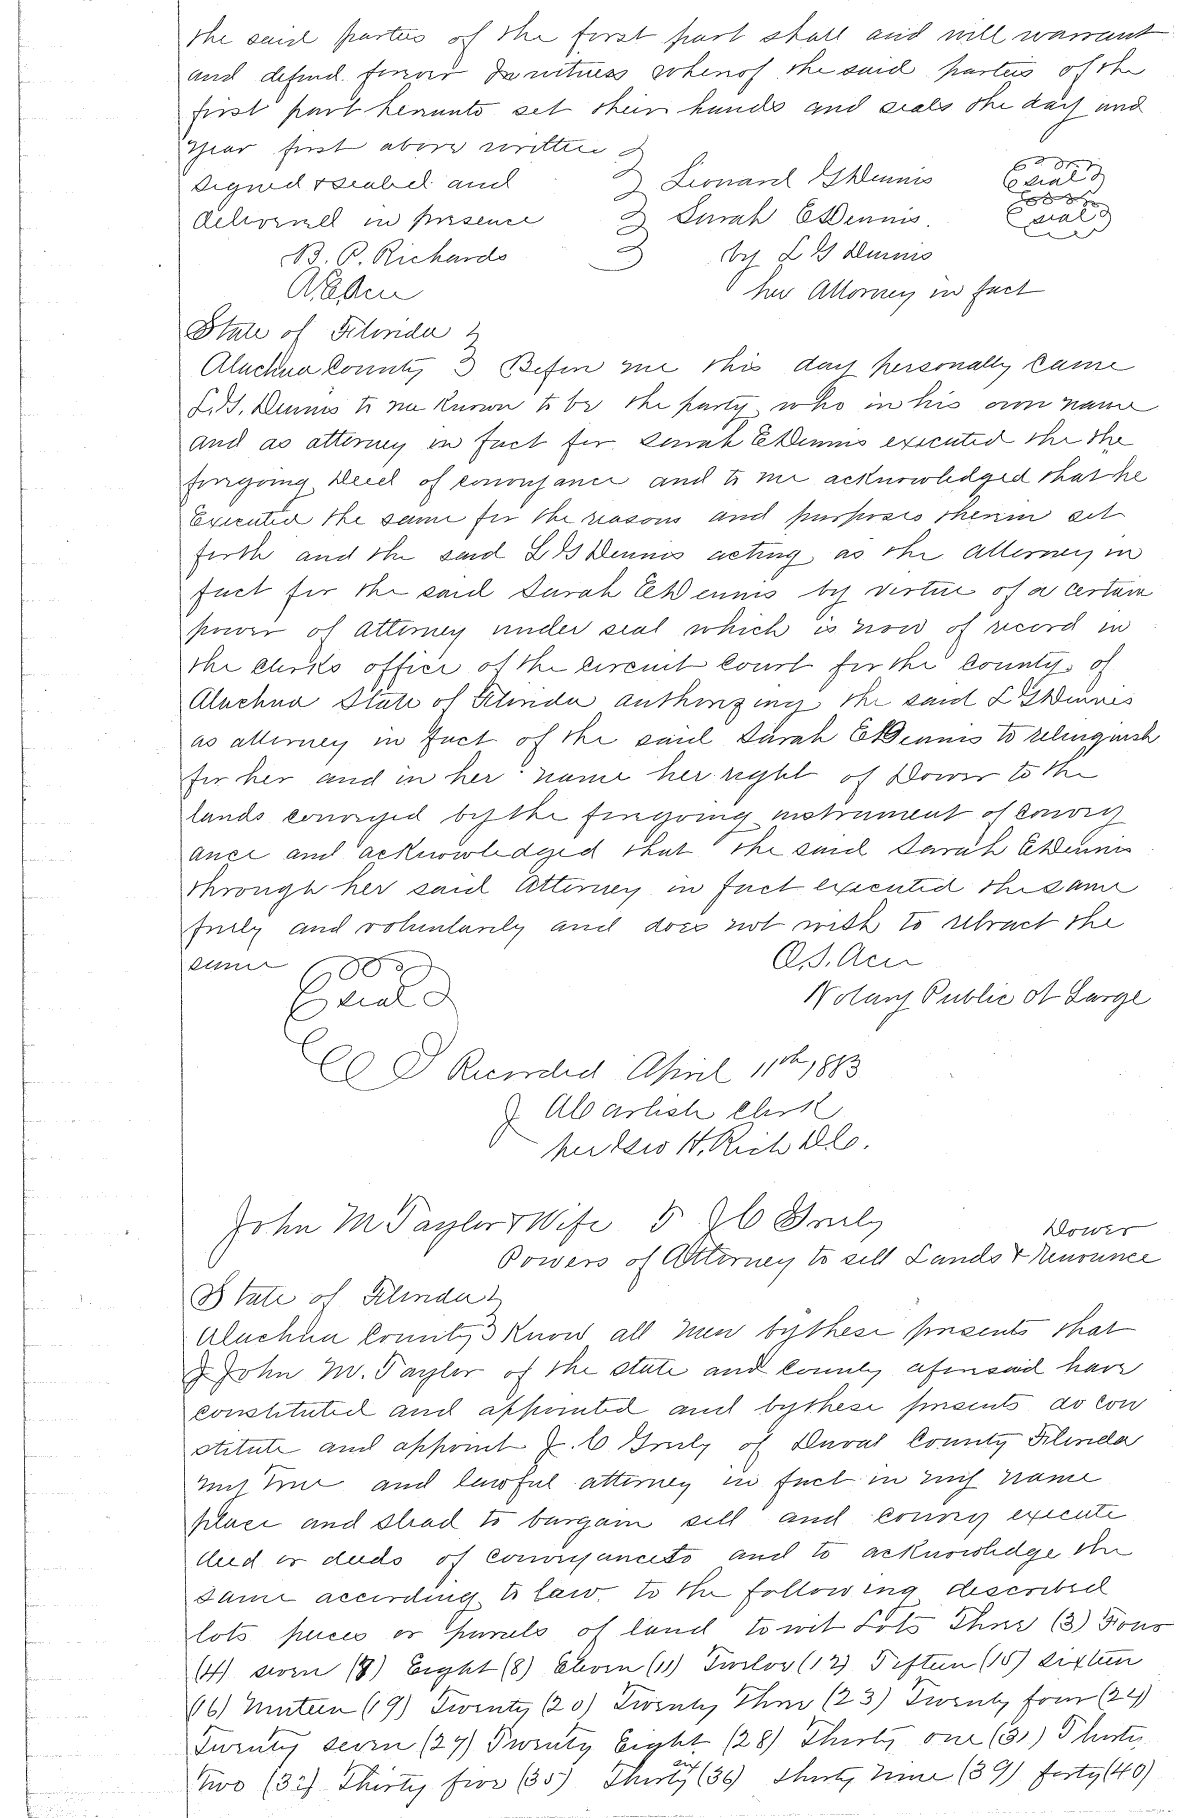 the said parties of the first part shall and will warrant
and defend forever In witness whereof the said parties of the
first part hereunto set their hands and seals the day and
year first above written
Signed & sealed and Leonard G Dennis seal
delivered in presence Sarah E Dennis seal
B. P. Richards by L G Dennis
her Attorney in fact
State of Florida
Alachua County Before me this day personally came
L. G. Dennis to me known to be the party who in his own name
and as attorney in fact for Sarah E Dennis executed the the
foregoing Deed of conveyance and to me acknowledged that he
Executed the same for the reasons and purposes therein set
forth and the said L G Dennis acting as the Attorney in
fact for the said Sarah E Dennis by virtue of a certain
power of Attorney under seal which is now of record in
the clerks office of the circuit court for the county of
Alachua State of Florida authorizing the said L G Dennis
as attorney in fact of the said Sarah E Dennis to relinquish
for her and in her name her right of Dower to the
lands conveyed by the foregoing instrument of convey
ance and acknowledged that the said Sarah E Dennis
through her said Attorney in fact executed the same
freely and voluntarily and does not wish to retract the
same
seal Notary Public at Large
Recorded April 11th 1883
J A Carlisle Clerk
per H. Rich D.C.
John M Taylor & Wife to J C Greely
Dower
Powers of Attorney to sell Lands & Renounce
State of Florida
Alachua County Know all men by these presents that
I John M. Taylor of the state and county aforesaid have
constituted and appointed and by these presents do con
stitute and appoint J. C Greely of Duval County Florida
my true and lawful attorney in fact in my name
place and stead to bargain sell and convey execute
deed or deeds of conveyance to and to acknowledge the
same according to law to the following described
lots pieces or parcels of land to wit Lots Three (3) Four
(4) seven (7) Eight (8) Eleven (11) Twelve (12) Fifteen (15) sixteen
(16) Nineteen (19) Twenty (20) Twenty Three (23) Twenty four (24)
Twenty seven (27) Twenty Eight (28) Thirty one (31) Thirty
two (32) Thirty five (35) Thirty six (36) thirty nine (39) forty (40)